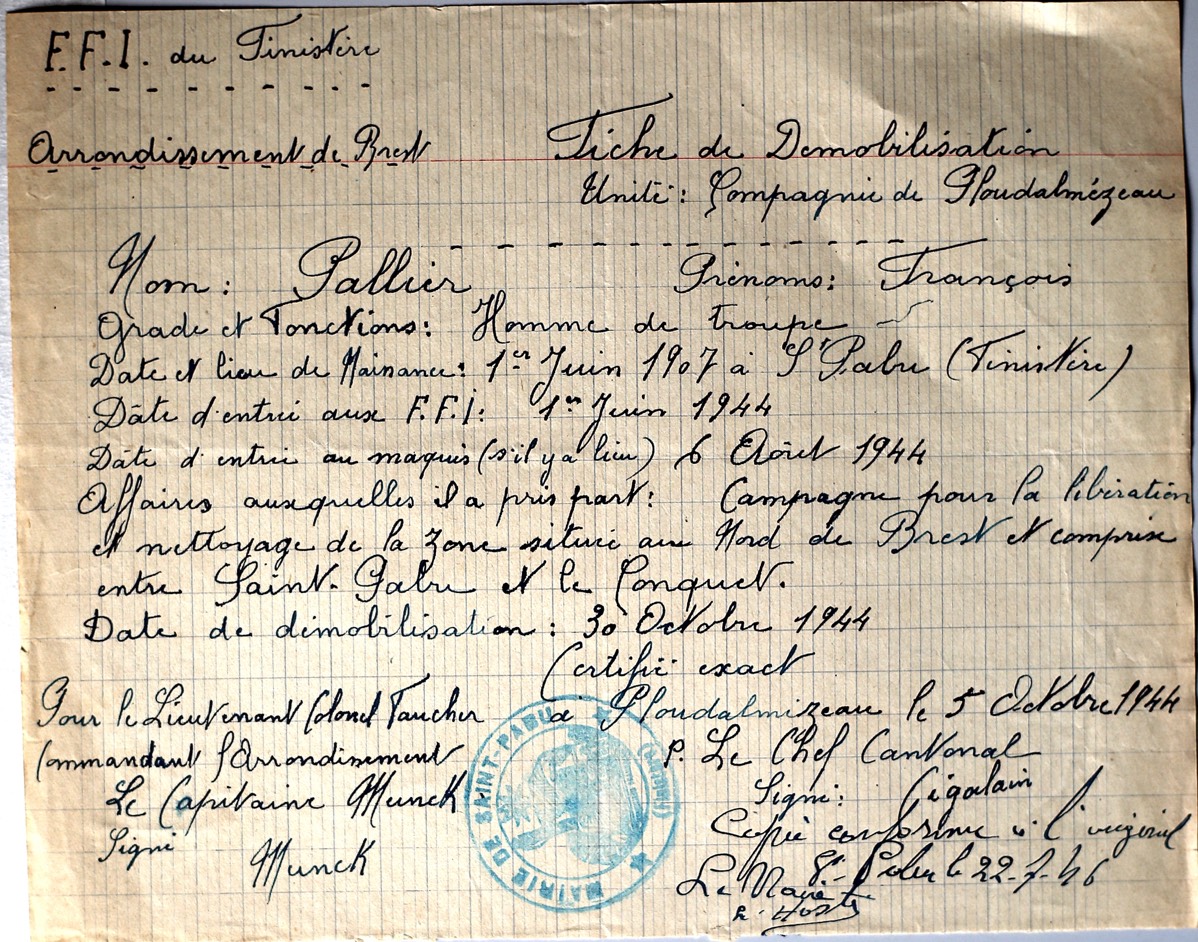 F.F.I. du Finistère
Arrondissement de Brest
Fiche de Démobilisation
Unité: Compagnie de Ploudalmézeau
Nom: Pallier Prénoms: François
Grade et Fonctions: Homme de troupe
Date et lieu de Naissance: 1er Juin 1907 à St Pabu (Finistère)
Dâte d'entrée aux F.F.I: 1er Juin 1944
Dâte d'entrée au maquis (s'il y a lieu) 6 Août 1944
Affaires auxquelles il a pris part: Campagne pour la libération
et nettoyage de la zone située au Nord de Brest et comprise
entre Saint-Pabu et le Conquet.
Date de démobilisation: 30 Octobre 1944
Certifié exact
Pour le Lieutenant Colonel Faucher
Commandant l'Arrondissement
Le Capitaine Munck
Signé
Munck
à Ploudalmézeau le 5 Octobre 1944
P. Le Chef Cantonal
Signé: Cigalain
Copie conforme à l'original
St-Pabu le 22-7-46
Le Maire
MAIRIE DE SAINT-PABU